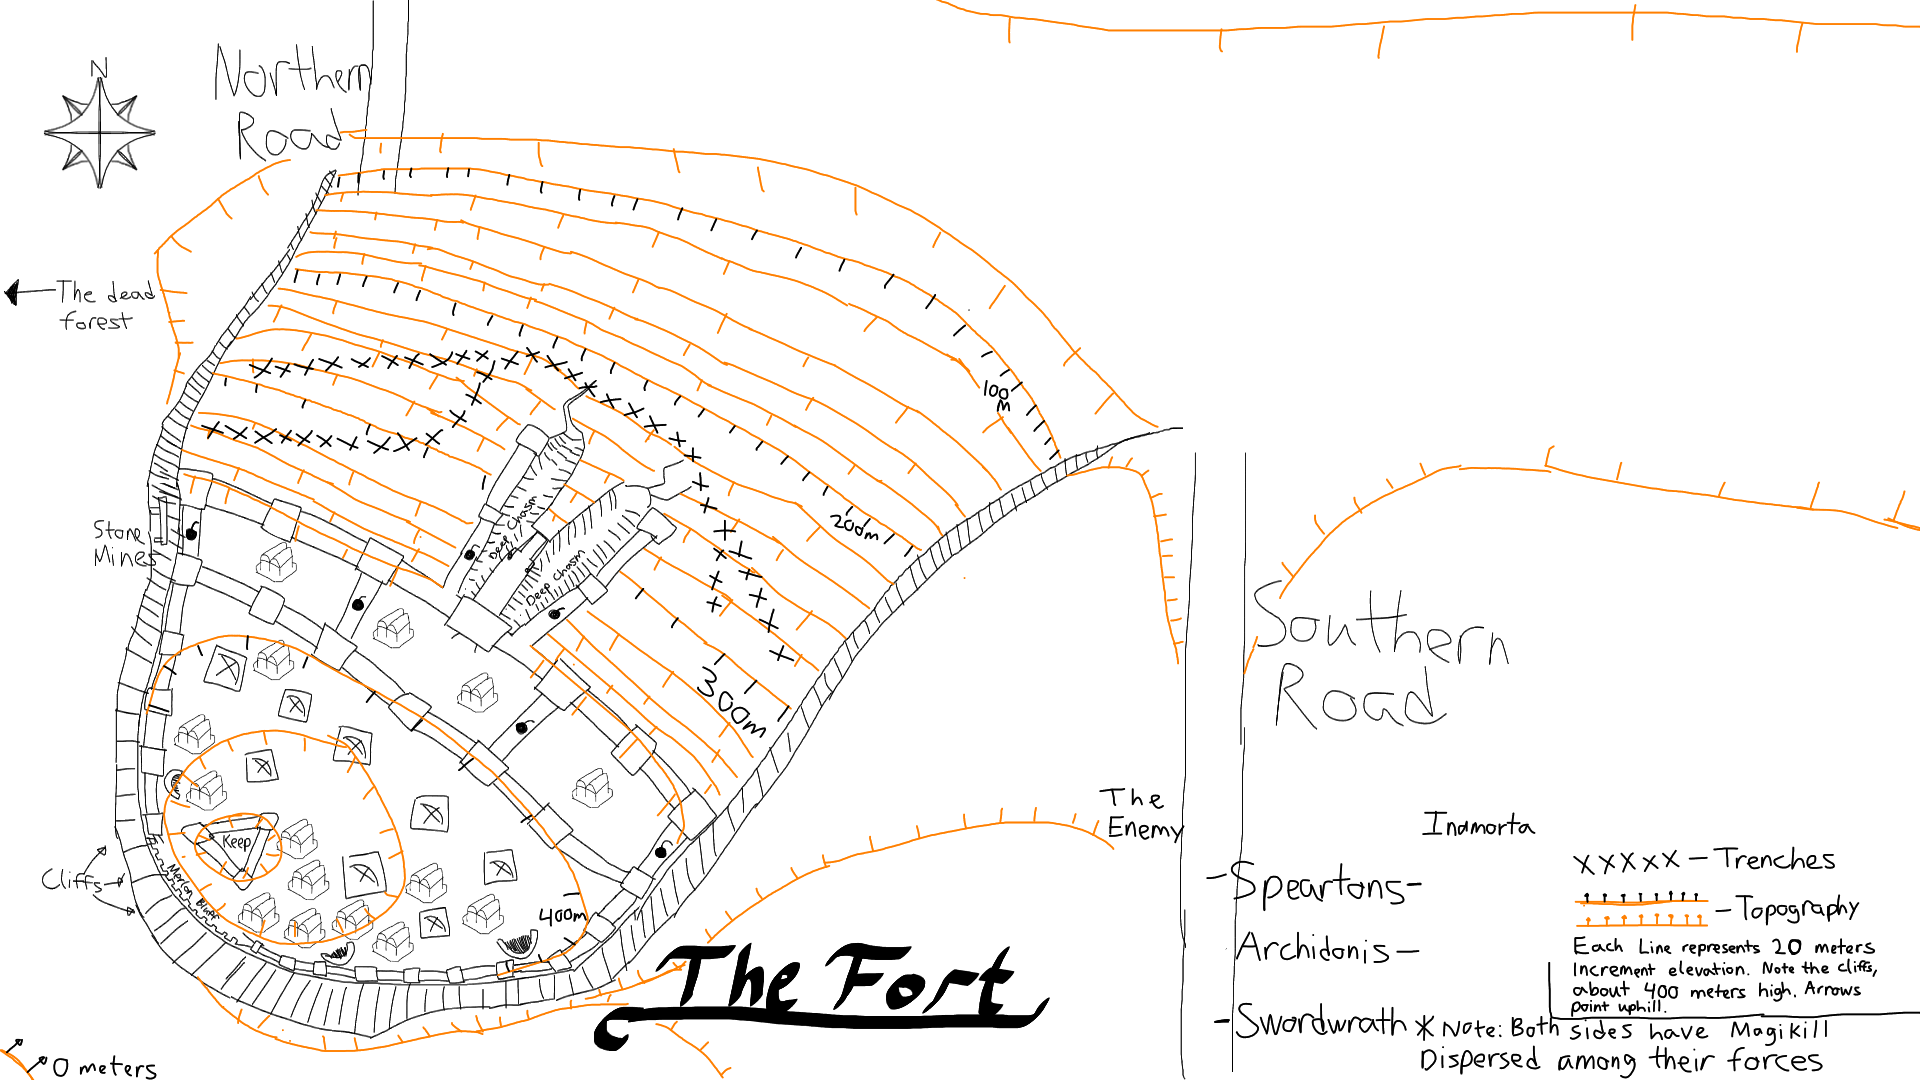 N
Northern
Road
The dead
forest
100
M
200m
300m
400m
Stone
Mines
Deep Chasm
Deep Chasm
Keep
Merlon Bluff
Cliffs
0 meters
The Fort
The
Enemy
Southern
Road
Inamorta
-Speartons-
Archidonis-
-Swordwrath
XXXXX - Trenches
- Topography
Each Line represents 20 meters
Increment elevation. Note the cliffs,
about 400 meters high. Arrows
point uphill.
* Note: Both sides have Magikill
Dispersed among their forces